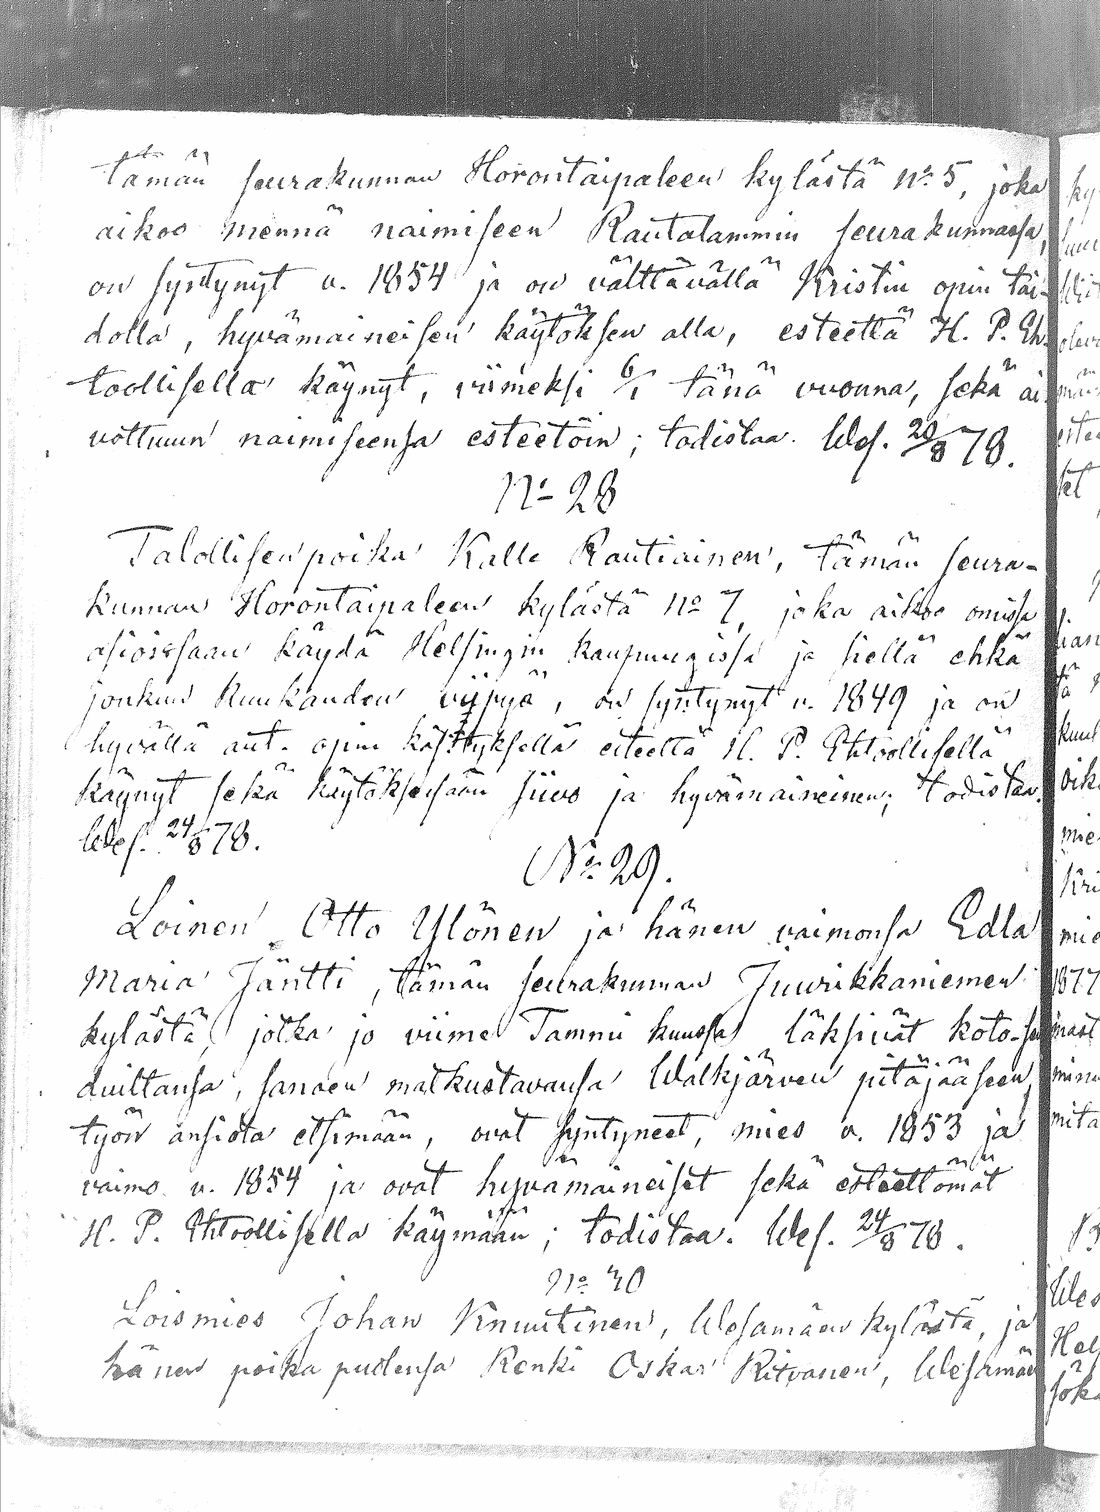 tämän seurakunnan Horontaipaleen kylästä No 5, joka
aikoo mennä naimiseen Rautalammin seurakunnassa,
on syntynyt v. 1854 ja on välttävällä Kristin opin tai-
dolla, hyvämaineisen käytöksen alla, esteettä H. P. Eh-
toollisella käynyt, viimeksi 6/1 tänä vuonna, sekä ai-
vottuun naimiseensa esteetöin; todistaa. Wes. 20/8 78.
No 28
Talollisen poika Kalle Rautiainen, tämän seura-
kunnan Horontaipaleen kylästä No 7, joka aikoo omissa
asioissaan käydä Helsingin kaupungissa ja siellä ehkä
jonkun kuukauden viipyä, on syntynyt v. 1849 ja on
hyvällä aut. opin käsityksellä esteettä H. P. Ehtoollisella
käynyt sekä käytöksessään siivo ja hyvämaineinen; todistaa.
Wes. 24/8 78.
No 29.
Loinen Otto Ylönen ja hänen vaimonsa Edla
Maria Jäntti, tämän seurakunnan Juurikkaniemen
kylästä, jotka jo viime Tammi kuussa läksivät koto-seu
duiltansa, sanoen matkustavansa Walkjärven pitäjääseen,
työn ansiota etsimään, ovat syntyneet, mies v. 1853 ja
vaimo v. 1854 ja ovat hyvämaineiset sekä esteettömät
H. P. Ehtoollisella käymään; todistaa. Wes. 24/8 78.
No 30
Loismies Johan Knuutinen, Wesamäen kylästä, ja
hänen poika puolensa Renki Oskar Ritvanen, Wesamäen